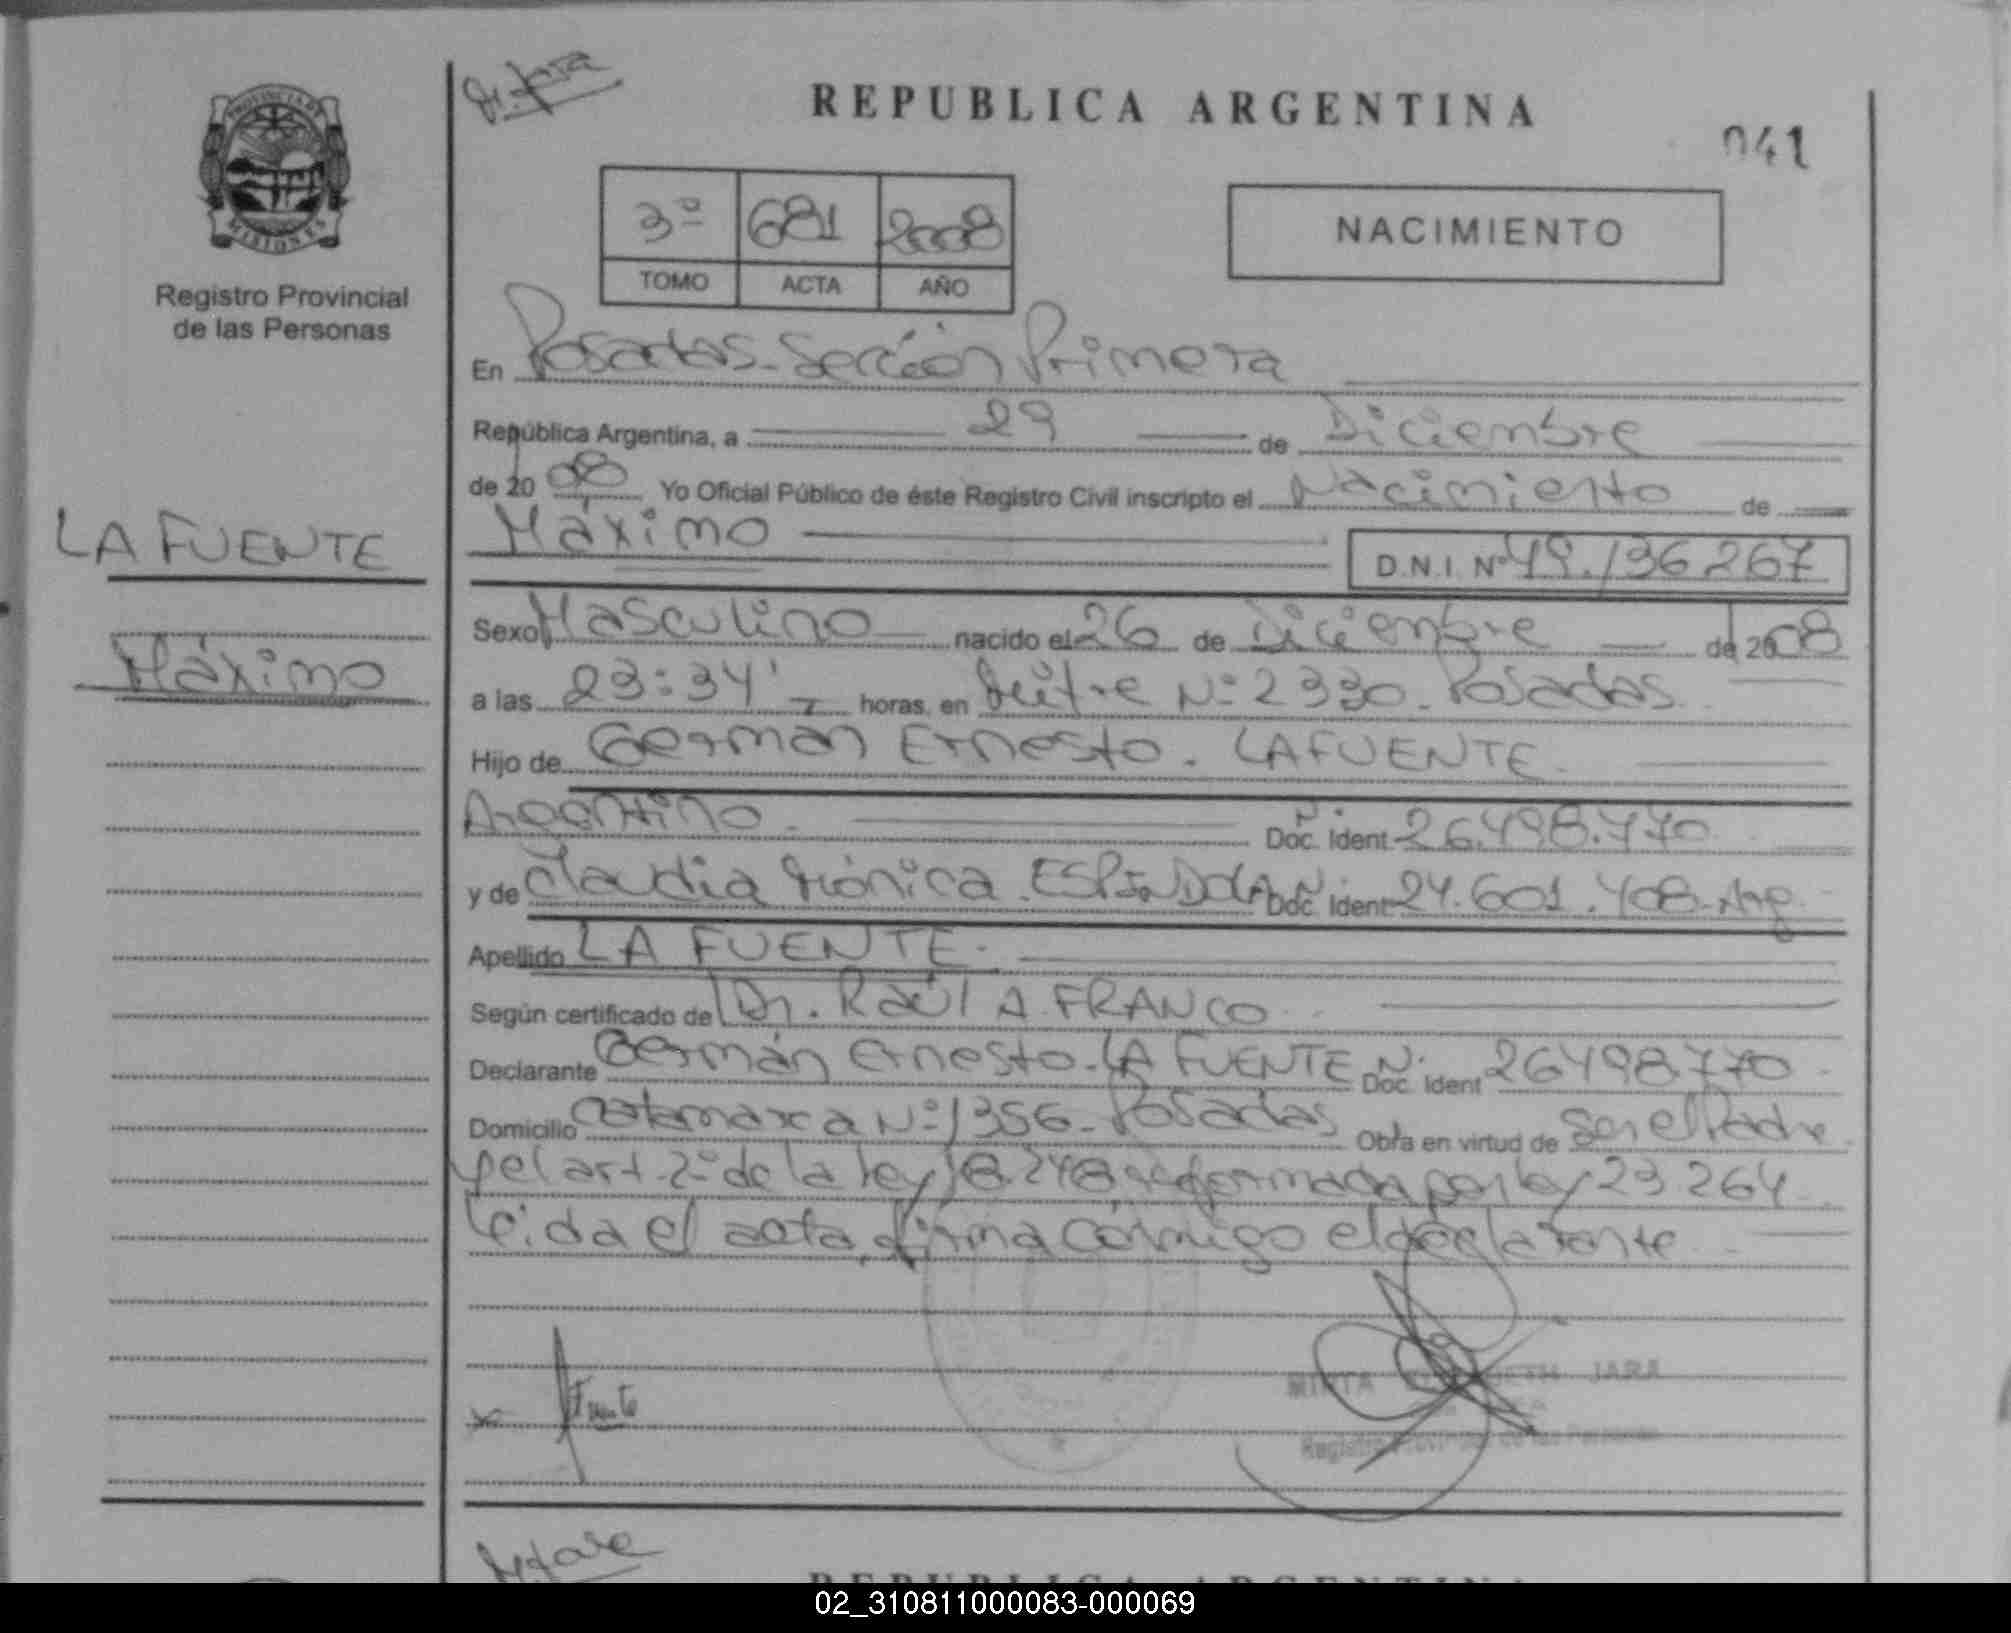 Dr. Jara
REPUBLICA ARGENTINA
041
PROVINCIA DE
MISIONES
Registro Provincial
de las Personas
3º 681 2008
TOMO ACTA AÑO
NACIMIENTO
En Posadas-Sección Primera
República Argentina, a 29 de Diciembre
de 2008 Yo Oficial Público de éste Registro Civil inscripto el Nacimiento de
Máximo D.N.I. Nº 49.136267
LA FUENTE
Máximo
Sexo Masculino nacido el 26 de Diciembre de 2008
a las 23:34' horas, en Mitre Nº 2330. Posadas
Hijo de Germán Ernesto. LAFUENTE
Argentino. Doc. Ident 26.498.770
y de Claudia Mónica. ESPINDOLA Doc. Ident 24.601.408-Arg.
Apellido LA FUENTE.
Según certificado de Dr. Raúl A. FRANCO
Declarante Germán Ernesto-LA FUENTE N. Doc. Ident 26498770
Domicilio Catamarca Nº 1356-Posadas Obra en virtud de Ser el Padre
y el art 2º de la ley 18.248 reformada por ley 23264
Leida el acta, firma conmigo el declarante
MIRTA JARA
Registro Provincial de las Personas
REPUBLICA ARGENTINA
02_310811000083-000069